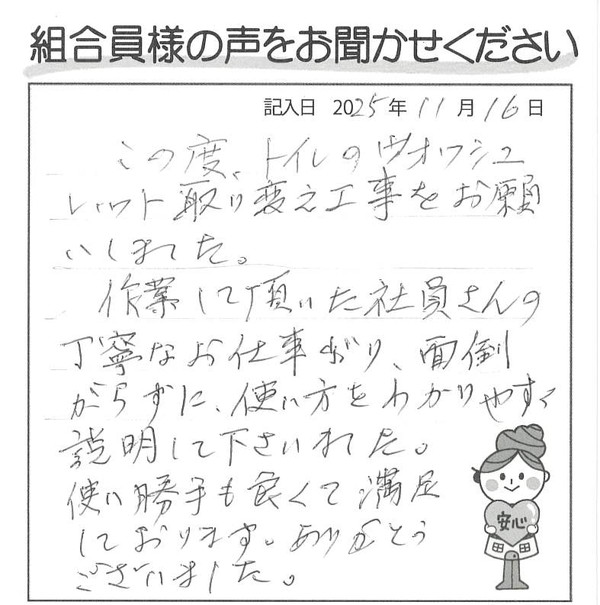 組合員様の声をお聞かせください
記入日 2025年11月16日
この度、トイレのウオワシュ
レット取り変え工事をお願
いしました。
作業して頂いた社員さんの
丁寧なお仕事ぶり、面倒
がらずに、使い方をわかりやすく
説明して下さいました。
使い勝手も良くて満足
しております。ありがとう
ございました。
安心